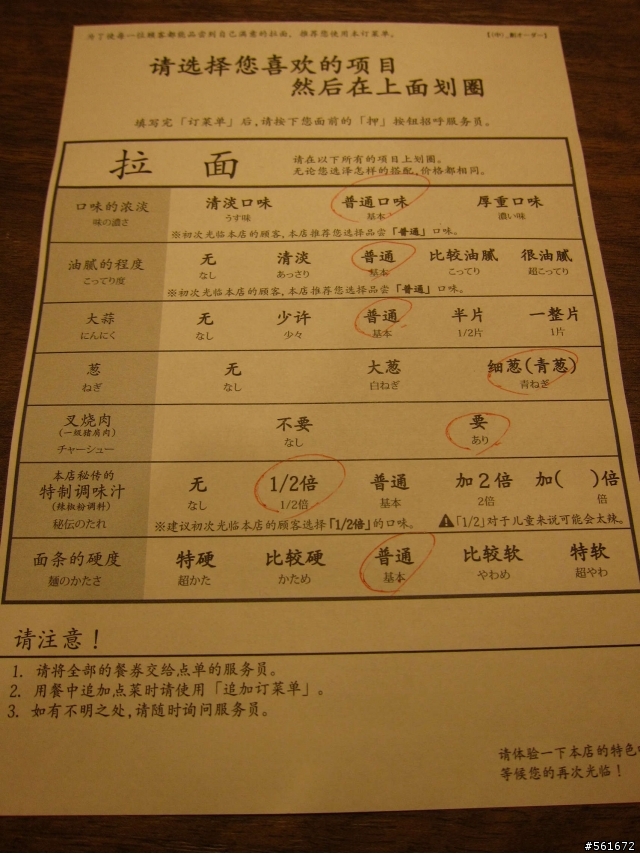 为了使每一位顾客都能品尝到自己满意的拉面, 推荐您使用本订菜单。
请选择您喜欢的项目
然后在上面划圈
填写完「订菜单」后,请按下您面前的「押」按钮招呼服务员。
拉 面
请在以下所有的项目上划圈。
无论您选泽怎样的搭配,价格都相同。
口味的浓淡 清淡口味 普通口味 厚重口味
味の濃さ うす味 基本 濃い味
※初次光临本店的顾客,本店推荐您选择品尝「普通」口味。
油腻的程度 无 清淡 普通 比较油腻 很油腻
こってり度 なし あっさり 基本 こってり 超こってり
※初次光临本店的顾客,本店推荐您选择品尝「普通」口味。
大蒜 无 少许 普通 半片 一整片
にんにく なし 少々 基本 1/2片 1片
葱 无 大葱 细葱(青葱)
ねぎ なし 白ねぎ 青ねぎ
叉烧肉 不要 要
(一级猪肩肉)
チャーシュー なし あり
本店秘传的
特制调味汁 无 1/2倍 普通 加2倍 加( )倍
(辣椒粉调料) なし 1/2倍 基本 2倍 倍
秘伝のたれ ※建议初次光临本店的顾客选择「1/2倍」的口味。 「1/2」对于儿童来说可能会太辣。
面条的硬度 特硬 比较硬 普通 比较软 特软
麺のかたさ 超かた かため 基本 やわめ 超やわ
请注意!
1. 请将全部的餐券交给点单的服务员。
2. 用餐中追加点菜时请使用「追加订菜单」。
3. 如有不明之处,请随时询问服务员。
请体验一下本店的特色
等候您的再次光临!
#561672